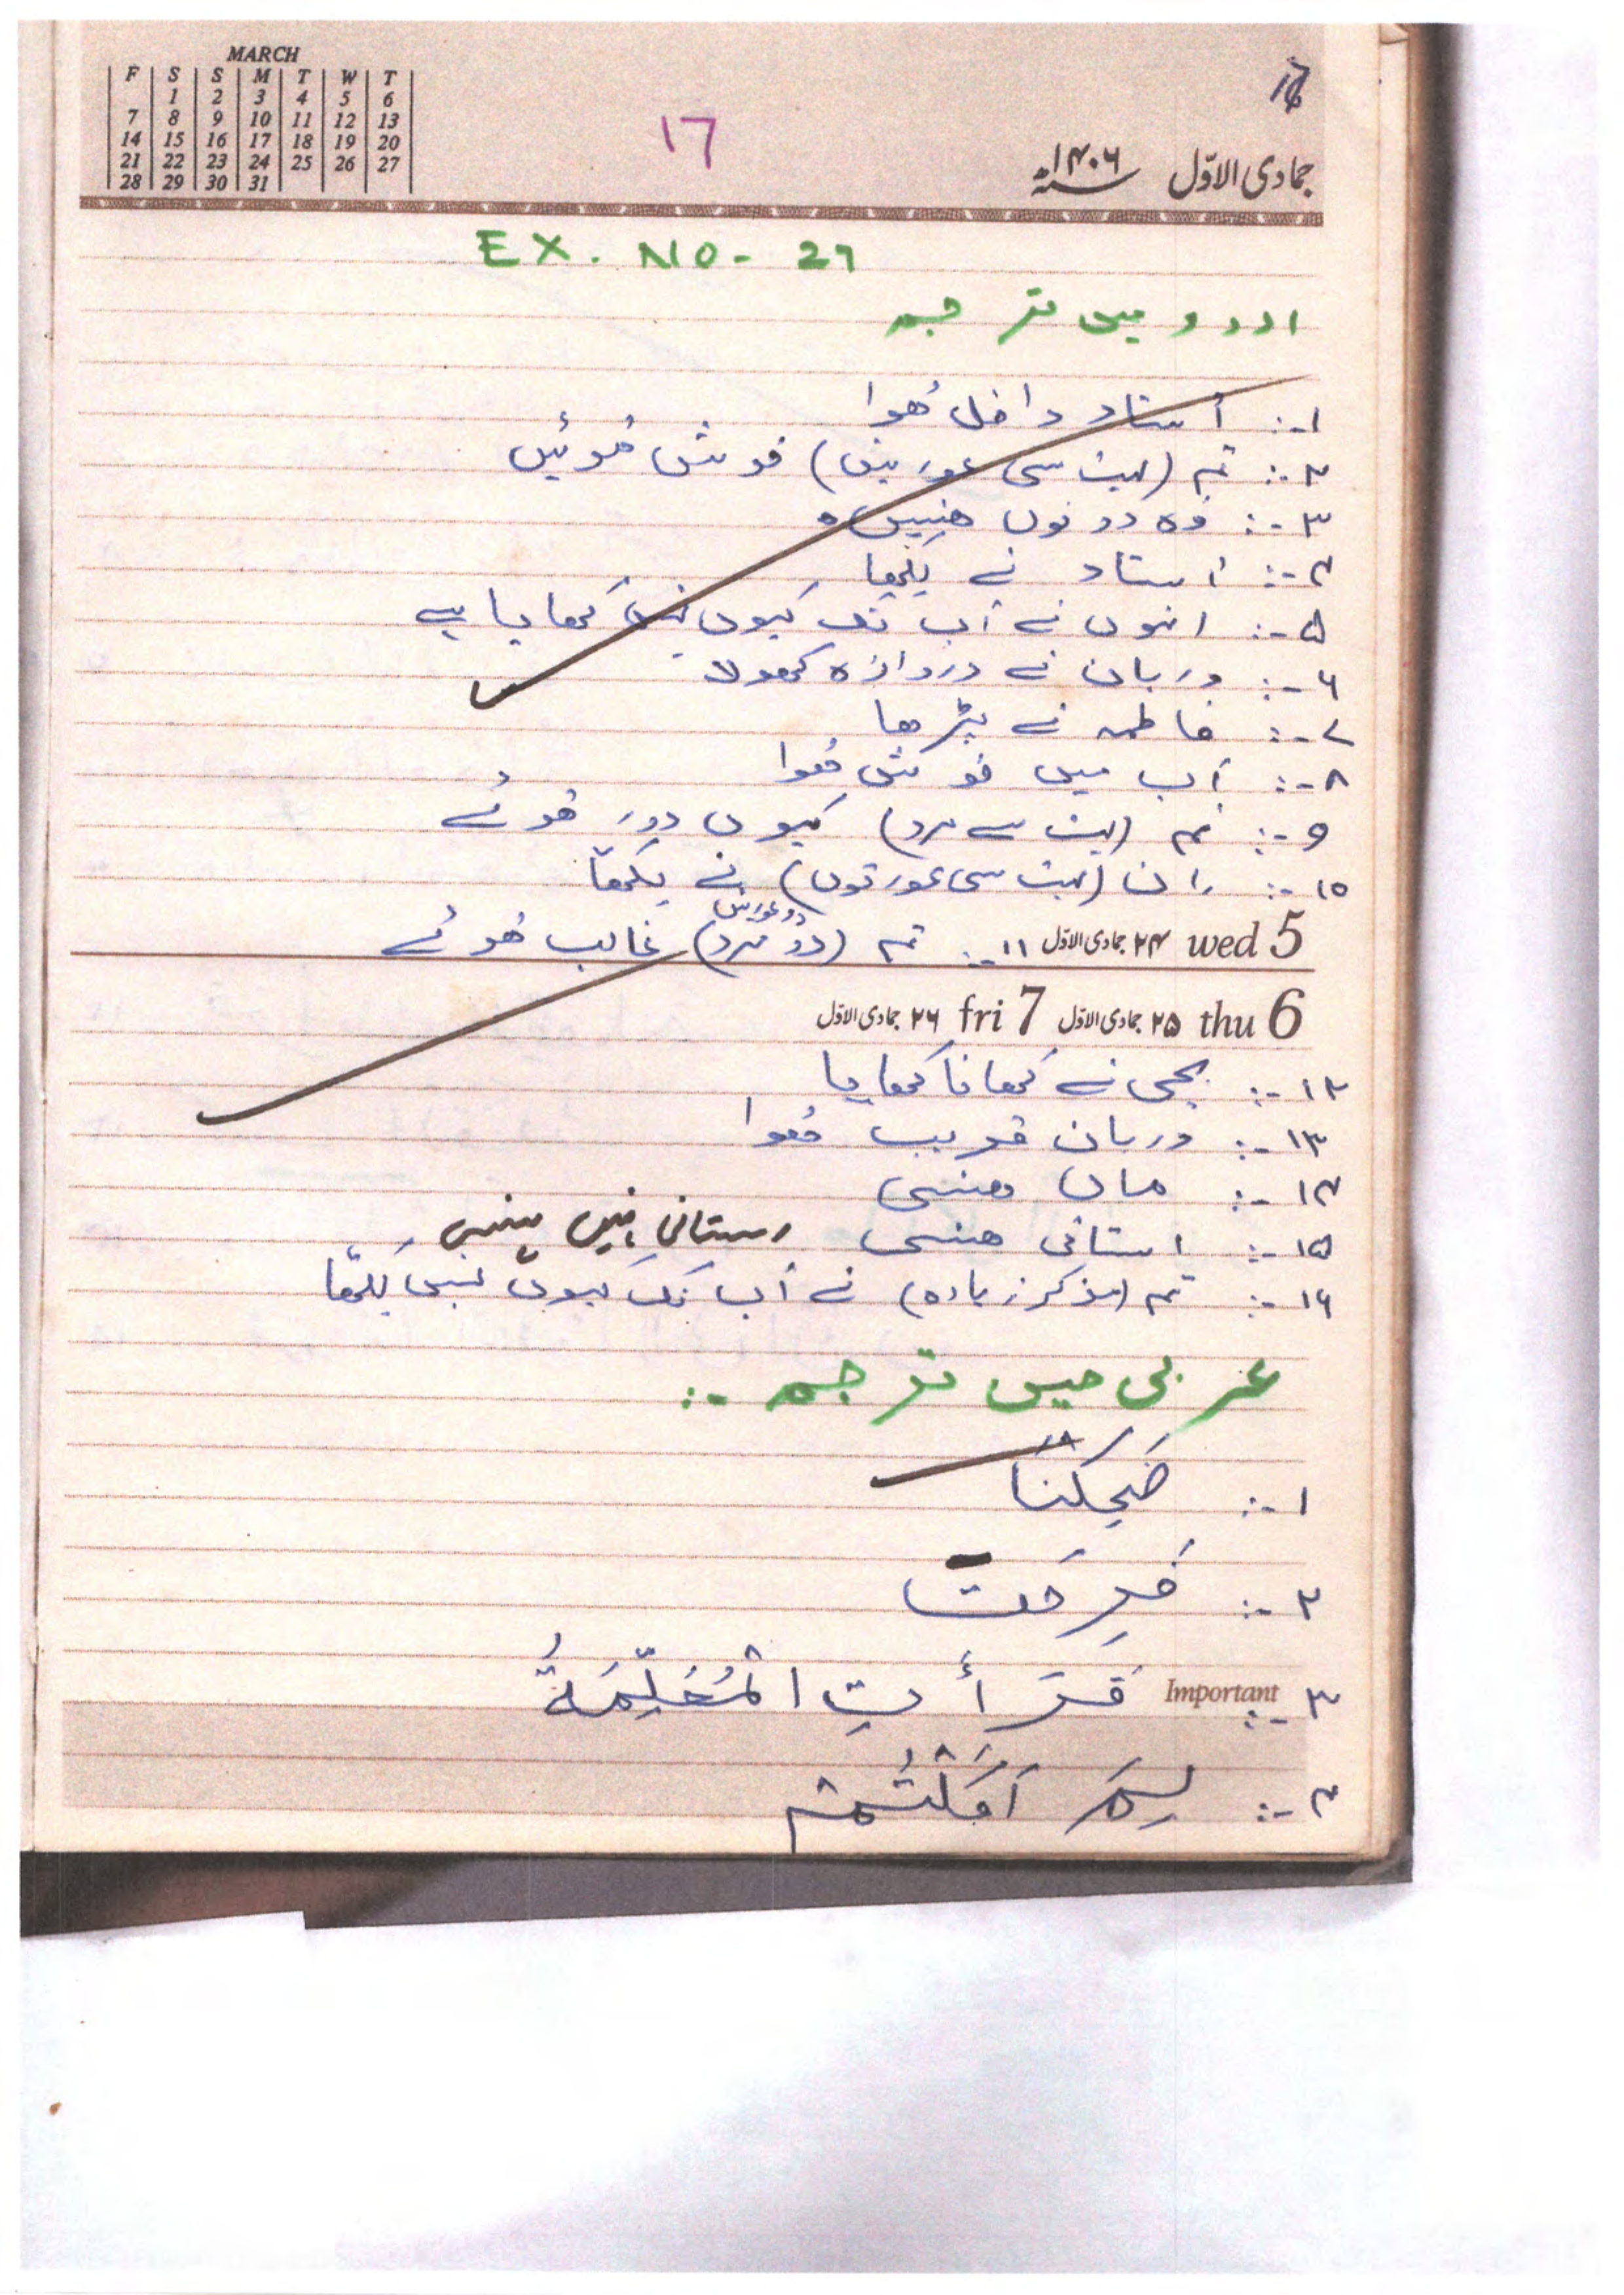 MARCH
F S S M T W T
1 2 3 4 5 6
7 8 9 10 11 12 13
14 15 16 17 18 19 20
21 22 23 24 25 26 27
28 29 30 31
17
جمادی الاوّل ۱۴۰۶
EX. NO- 27
اردو میں ترجمہ
۱-: اُستاد داخل ہُوا
۲-: تم (بہت سی عورتیں) خوش ہوئیں
۳-: وہ دونوں ہنسیں
۴-: اُستاد نے لکھا
۵-: انہوں نے اب تک کیوں نہیں کھایا ہے
۶-: دربان نے دروازہ کھولا
۷-: فاطمہ نے پڑھا
۸-: اَب میں خوش ہُوا
۹-: تم (بہت سے مرد) کیوں دور ہوئے
۱۰-: اِن (بہت سی عورتوں) نے لکھا
دو عورتیں
wed 5 ۲۴ جمادی الاوّل ۱۱-: تم (دو مرد) غالب ہُوئے
thu 6 ۲۵ جمادی الاوّل fri 7 ۲۶ جمادی الاوّل
۱۲-: بچی نے کھانا کھایا
۱۳-: دربان قریب ہُوا
۱۴-: ماں ہنسی
۱۵-: استانی ہنسی استانی نہیں ہنسی
۱۶-: تم (مذکر زیادہ) نے اَب تک کیوں نہیں لکھا
عربی میں ترجمہ :-
۱-: ضَحِکْنَا
۲-: فَرِحَت
۳-: قَرَأَتِ الْمُعَلِّمَةُ
Important
۴-: لِمَ اَکَلْتُمْ